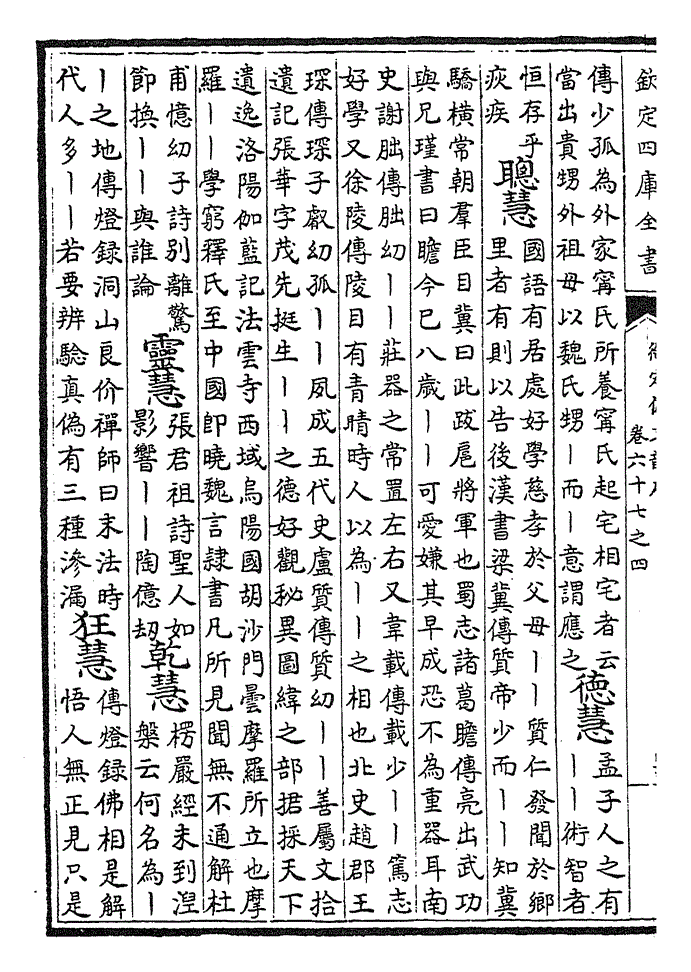 欽定四庫全書
卷六十七之四
傳少孤為外家甯氏所養甯氏起宅相宅者云
當出貴甥外祖母以魏氏甥丨而丨意謂應之
德慧
孟子人之有
丨丨術智者
恒存乎
疢疾
聰慧
國語有居處好學慈孝於父母丨丨質仁發聞於鄉
里者有則以告後漢書梁冀傳質帝少而丨丨知冀
驕橫常朝羣臣目冀曰此跋扈將軍也蜀志諸葛瞻傳亮出武功
與兄瑾書曰瞻今已八歲丨丨可愛嫌其早成恐不為重器耳南
史謝朏傳朏幼丨丨莊器之常置左右又韋載傳載少丨丨篤志
好學又徐陵傳陵目有青睛時人以為丨丨之相也北史趙郡王
琛傳琛子叡幼孤丨丨夙成五代史盧質傳質幼丨丨善屬文拾
遺記張華字茂先挺生丨丨之德好觀秘異圖緯之部捃採天下
遺逸洛陽伽藍記法雲寺西域烏陽國胡沙門曇摩羅所立也摩
羅丨丨學窮釋氏至中國即曉魏言隸書凡所見聞無不通解杜
甫憶幼子詩別離驚
節換丨丨與誰論
靈慧
張君祖詩聖人如
影響丨丨陶億劫
乾慧
楞嚴經未到湼
槃云何名為丨
丨之地傳燈錄洞山良价禪師曰末法時
代人多丨丨若要辨驗真偽有三種滲漏
狂慧
傳燈錄佛相是解
悟人無正見只是